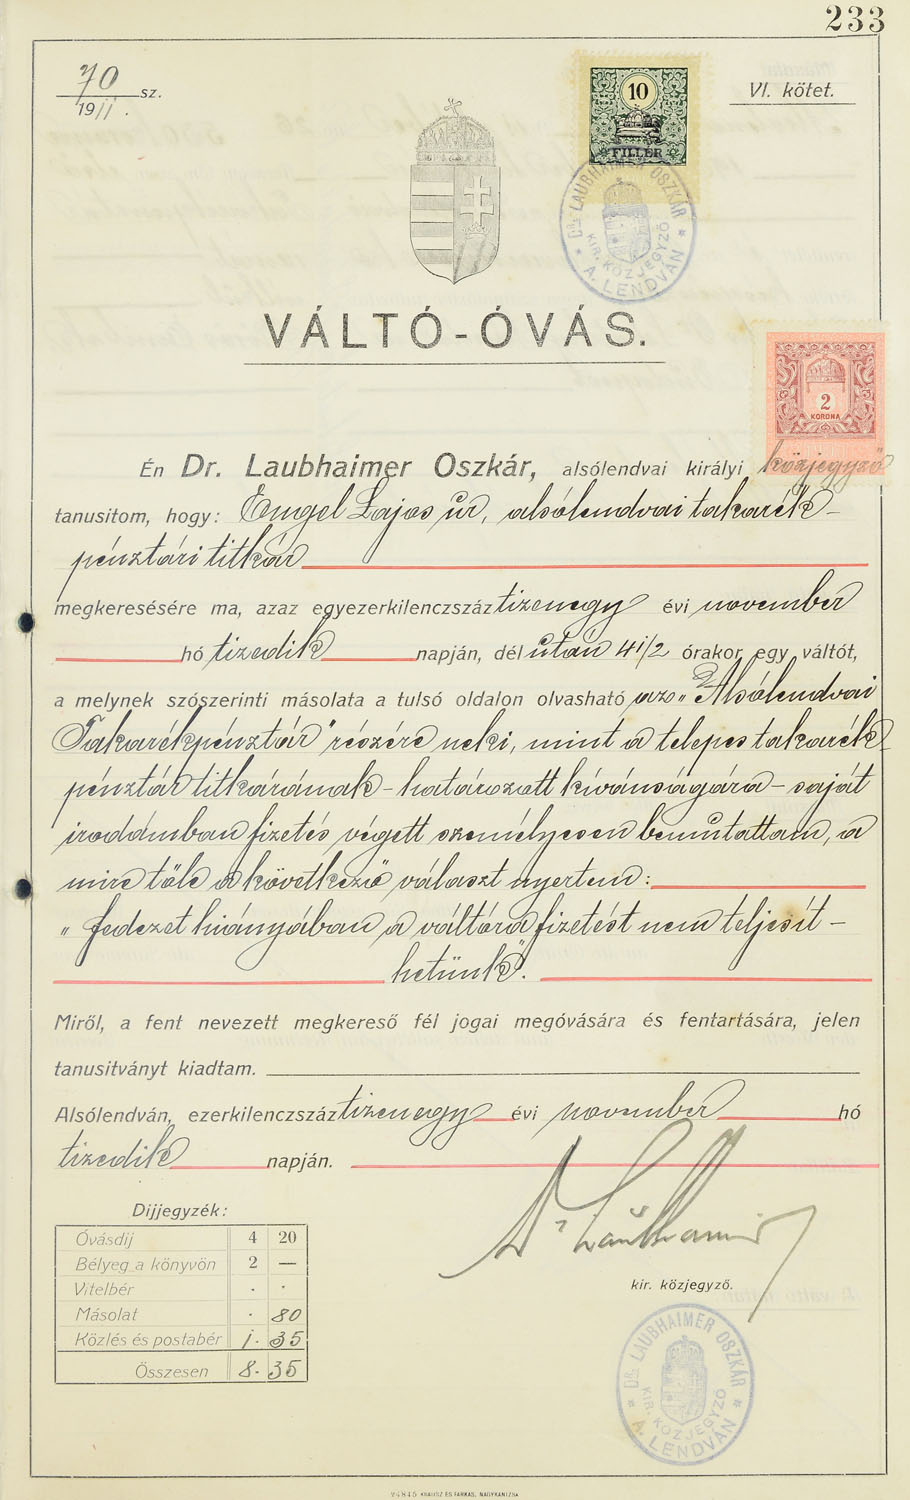 233
70 sz.
1911.
VI. kötet.
10
FILLÉR
DR. LAUBHAIMER OSZKÁR
KIR. KÖZJEGYZŐ
* A. LENDVÁN *
VÁLTÓ-ÓVÁS.
2
KORONA
Én Dr. Laubhaimer Oszkár, alsólendvai királyi közjegyző
tanusitom, hogy: Engel Lajos úr, alsólendvai takarék-
pénztári titkár
megkeresésére ma, azaz egyezerkilenczszáz tizenegy évi november
hó tizedik napján, dél után 4 1/2 órakor egy váltót,
a melynek szószerinti másolata a tulsó oldalon olvasható az „Alsólendvai
Takarékpénztár" részére neki, mint a telepes takarék-
pénztár titkárának - határozott kívánságára - saját
irodámban fizetés végett személyesen bemutattam, a
mire tőle a következő választ nyertem:
„fedezet hiányában a váltóra fizetést nem teljesít-
hetünk".
Miről, a fent nevezett megkereső fél jogai megóvására és fentartására, jelen
tanusitványt kiadtam.
Alsólendván, ezerkilenczszáz tizenegy évi november hó
tizedik napján.
Dr Laubhaimer
kir. közjegyző.
Dijjegyzék:
Óvásdij 4 20
Bélyeg a könyvön 2 —
Vitelbér . .
Másolat . 80
Közlés és postabér 1. 35
Összesen 8. 35
DR. LAUBHAIMER OSZKÁR
KIR. KÖZJEGYZŐ
* A. LENDVÁN *
24845 KRAUSZ ÉS FARKAS, NAGYKANIZSA